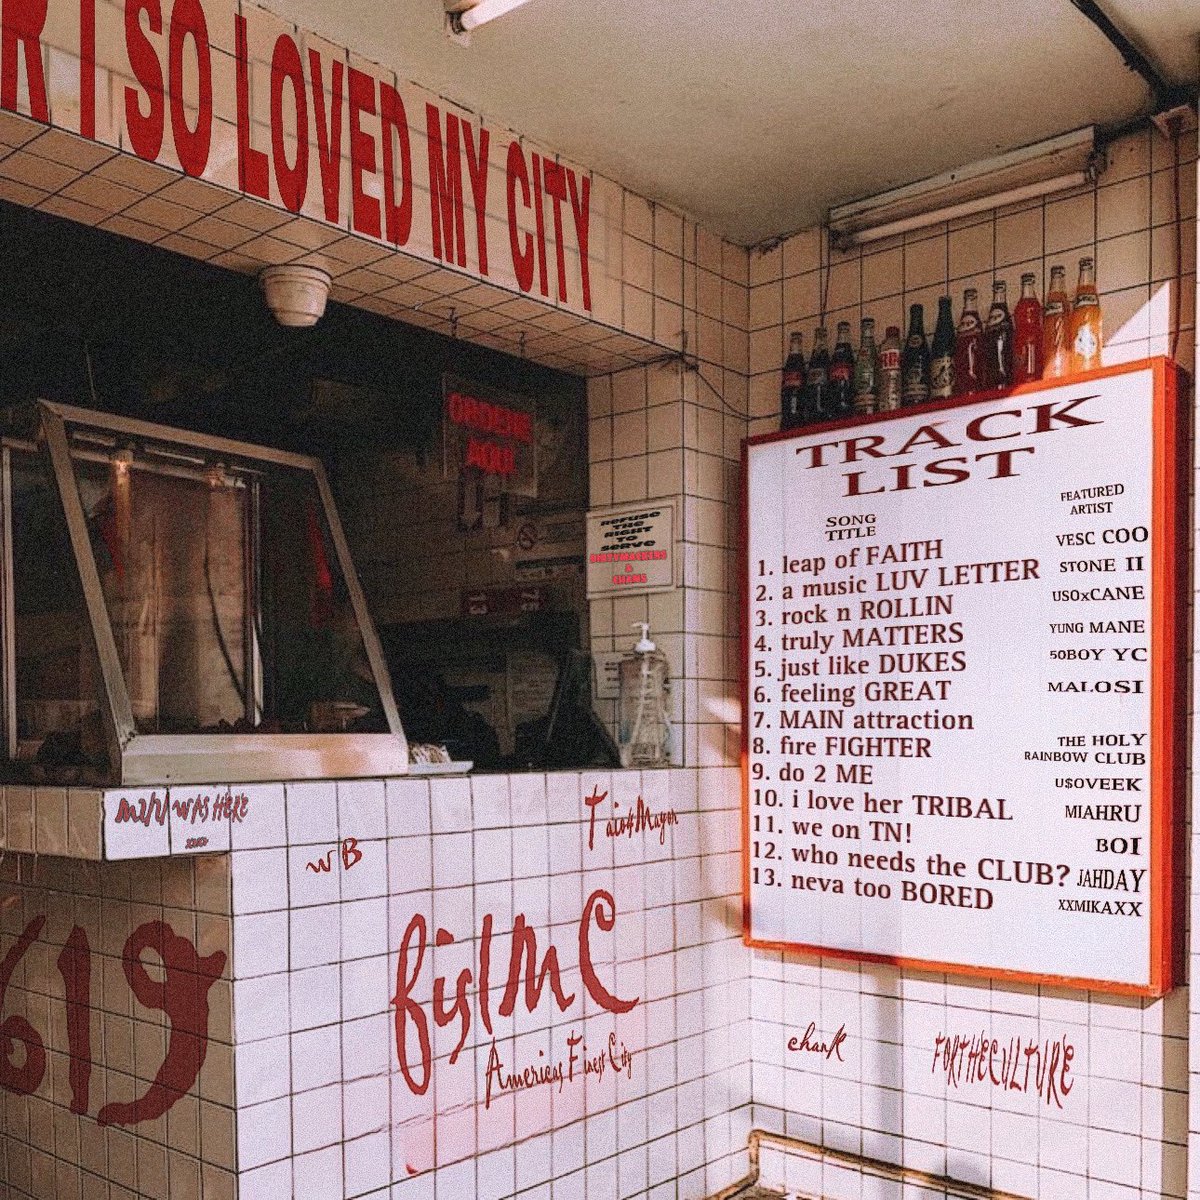 R I SO LOVED MY CITY
ORDENE
AQUI
REFUSE
THE
RIGHT
TO
SERVE
&
TRACK
LIST
SONG
TITLE
FEATURED
ARTIST
1. leap of FAITH VESC COO
2. a music LUV LETTER STONE II
3. rock n ROLLIN USOxCANE
4. truly MATTERS YUNG MANE
5. just like DUKES 50BOY YC
6. feeling GREAT MALOSI
7. MAIN attraction
8. fire FIGHTER THE HOLY
RAINBOW CLUB
9. do 2 ME U$OVEEK
10. i love her TRIBAL MIAHRU
11. we on TN! BOI
12. who needs the CLUB? JAHDAY
13. neva too BORED XXMIKAXX
WAS HERE
WB
Tais4Mayor
619
Americas Finest City
chank
FORTHECULTURE